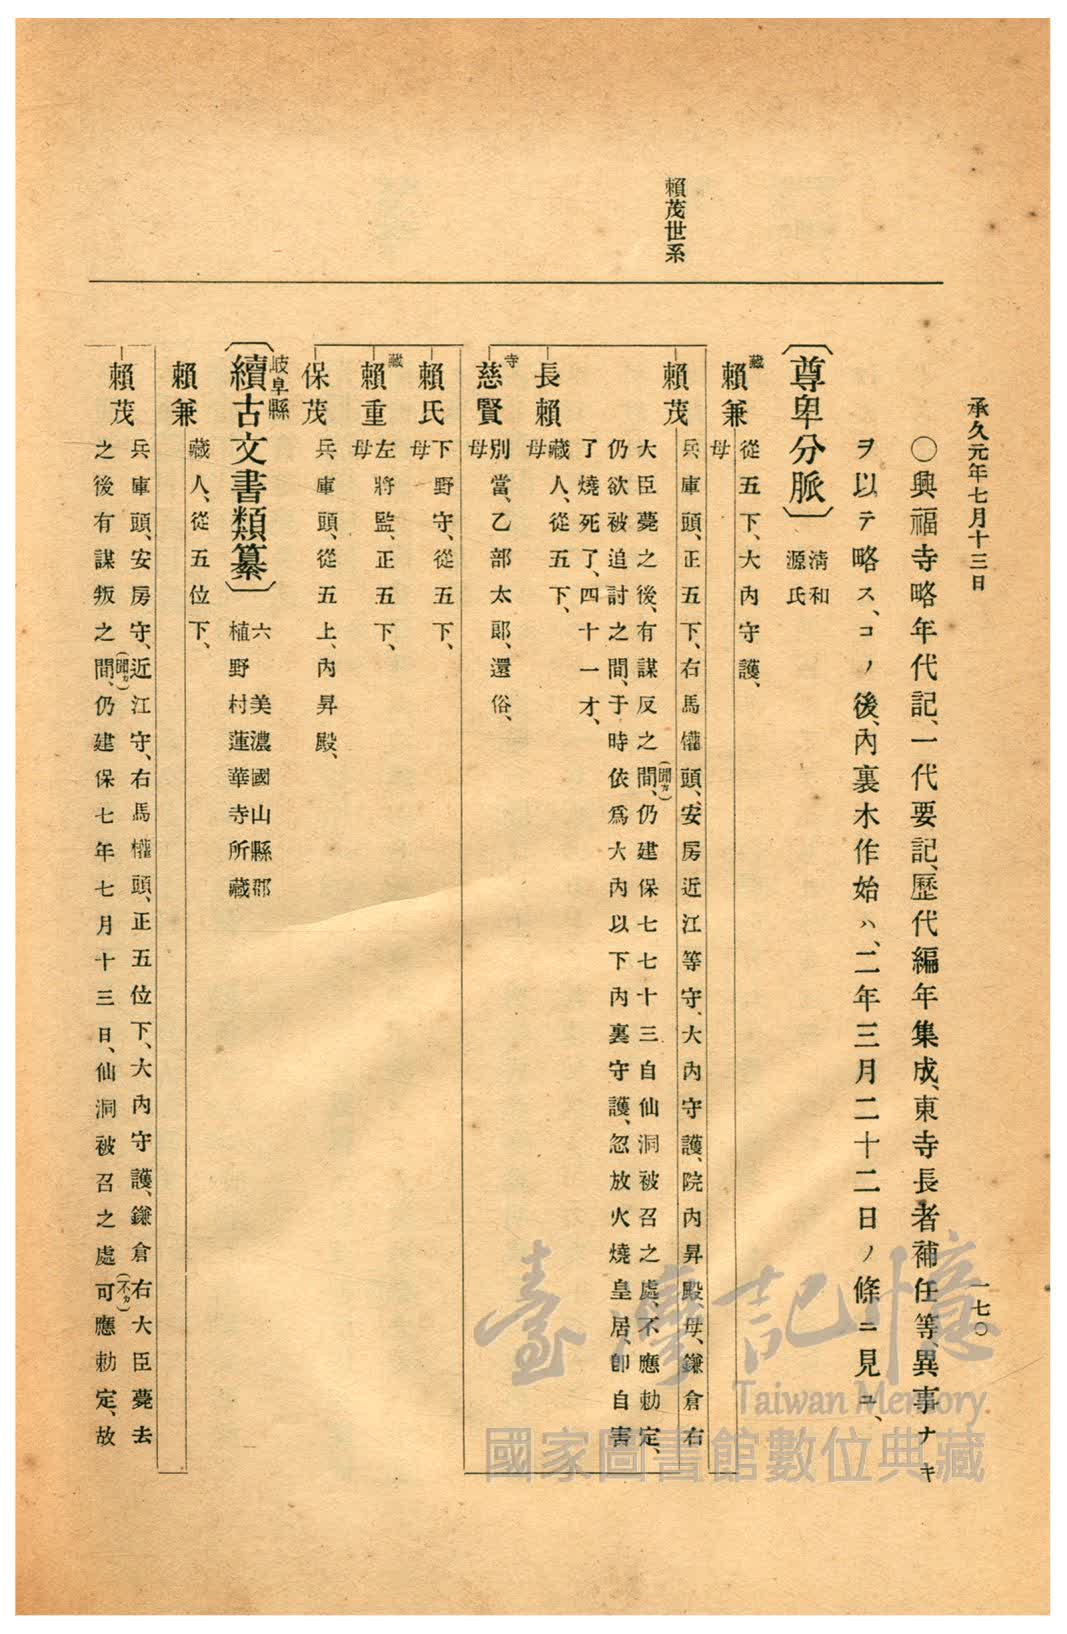 承久元年七月十三日
一七〇
〇興福寺略年代記、一代要記、歷代編年集成、東寺長者補任等、異事ナキ
ヲ以テ略ス、コノ後、內裏木作始ハ、二年三月二十二日ノ條ニ見ユ、
賴茂世系
〔尊卑分脈〕
淸和
源氏
藏
賴兼
從五下、大內守護、
母
賴茂
兵庫頭、正五下、右馬權頭、安房近江等守、大內守護、院內昇殿、母、鎌倉右
大臣薨之後、有謀反之間、(聞カ)仍建保七七十三自仙洞被召之處、不應勅定、
仍欲被追討之間、于時依爲大內以下內裏守護、忽放火燒皇居、卽自害
了燒死了、四十一才、
長賴
藏人、從五下、
母
寺
慈賢
別當、乙部太郞、還俗、
母
賴氏
下野守、從五下、
母
藏
賴重
左將監、正五下、
母
保茂
兵庫頭、從五上、內昇殿、
岐阜縣
〔續古文書類纂〕
六 美濃國山縣郡
植野村蓮華寺所藏
賴兼
藏人、從五位下、
賴茂
兵庫頭、安房守、近江守、右馬權頭、正五位下、大內守護、鎌倉右大臣薨去
之後有謀叛之間、(聞カ)仍建保七年七月十三日、仙洞被召之處可(不カ)應勅定、故
臺灣記憶
Taiwan Memory
國家圖書館數位典藏